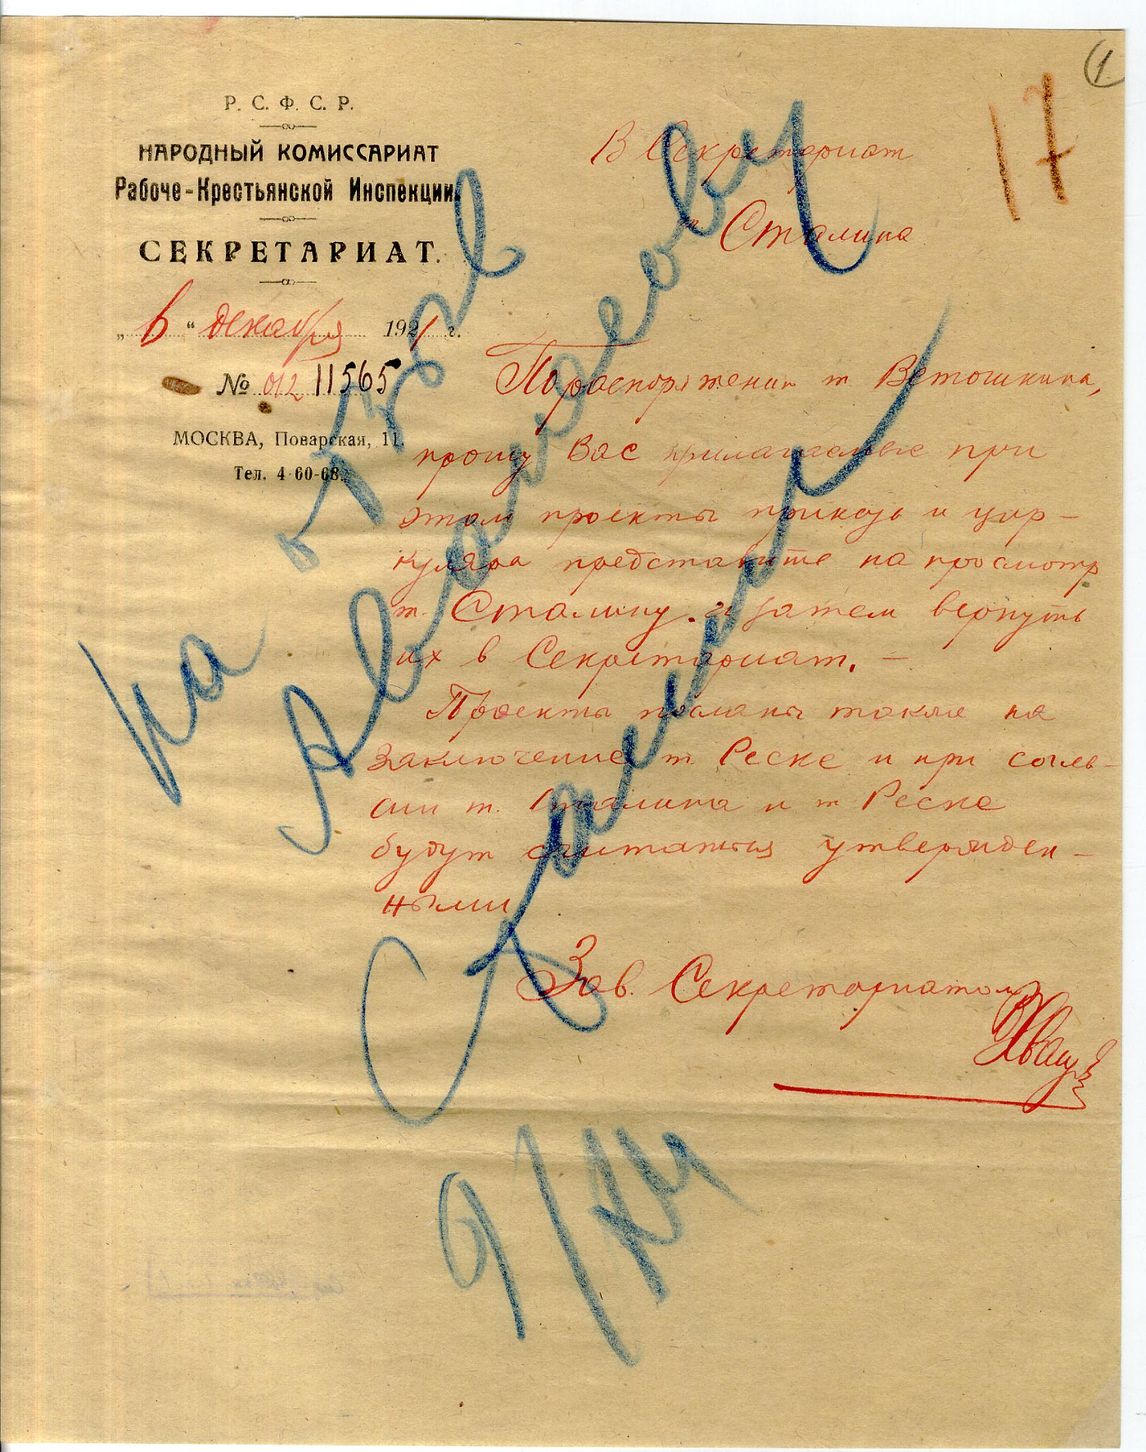 1
17
Р. С. Ф. С. Р.
НАРОДНЫЙ КОМИССАРИАТ
Рабоче-Крестьянской Инспекции.
СЕКРЕТАРИАТ.
„6“ декабря 1921 г.
№ 012 11565
МОСКВА, Поварская, 11.
Тел. 4-60-68.
В Секретариат
т. Сталина
По распоряжению т Ветошкина,
прошу Вас прилагаемые при
этом проекты приказа и цир-
куляра представить на просмотр
т. Сталину и затем вернуть
их в Секретариат. —
Проекты посланы также на
заключение т. Реске и при согла-
сии т. Сталина и т Реске
будут считаться утвержден-
ными
Зав. Секретариатом
На отзыв
Аванесову
Сталин
9/XII